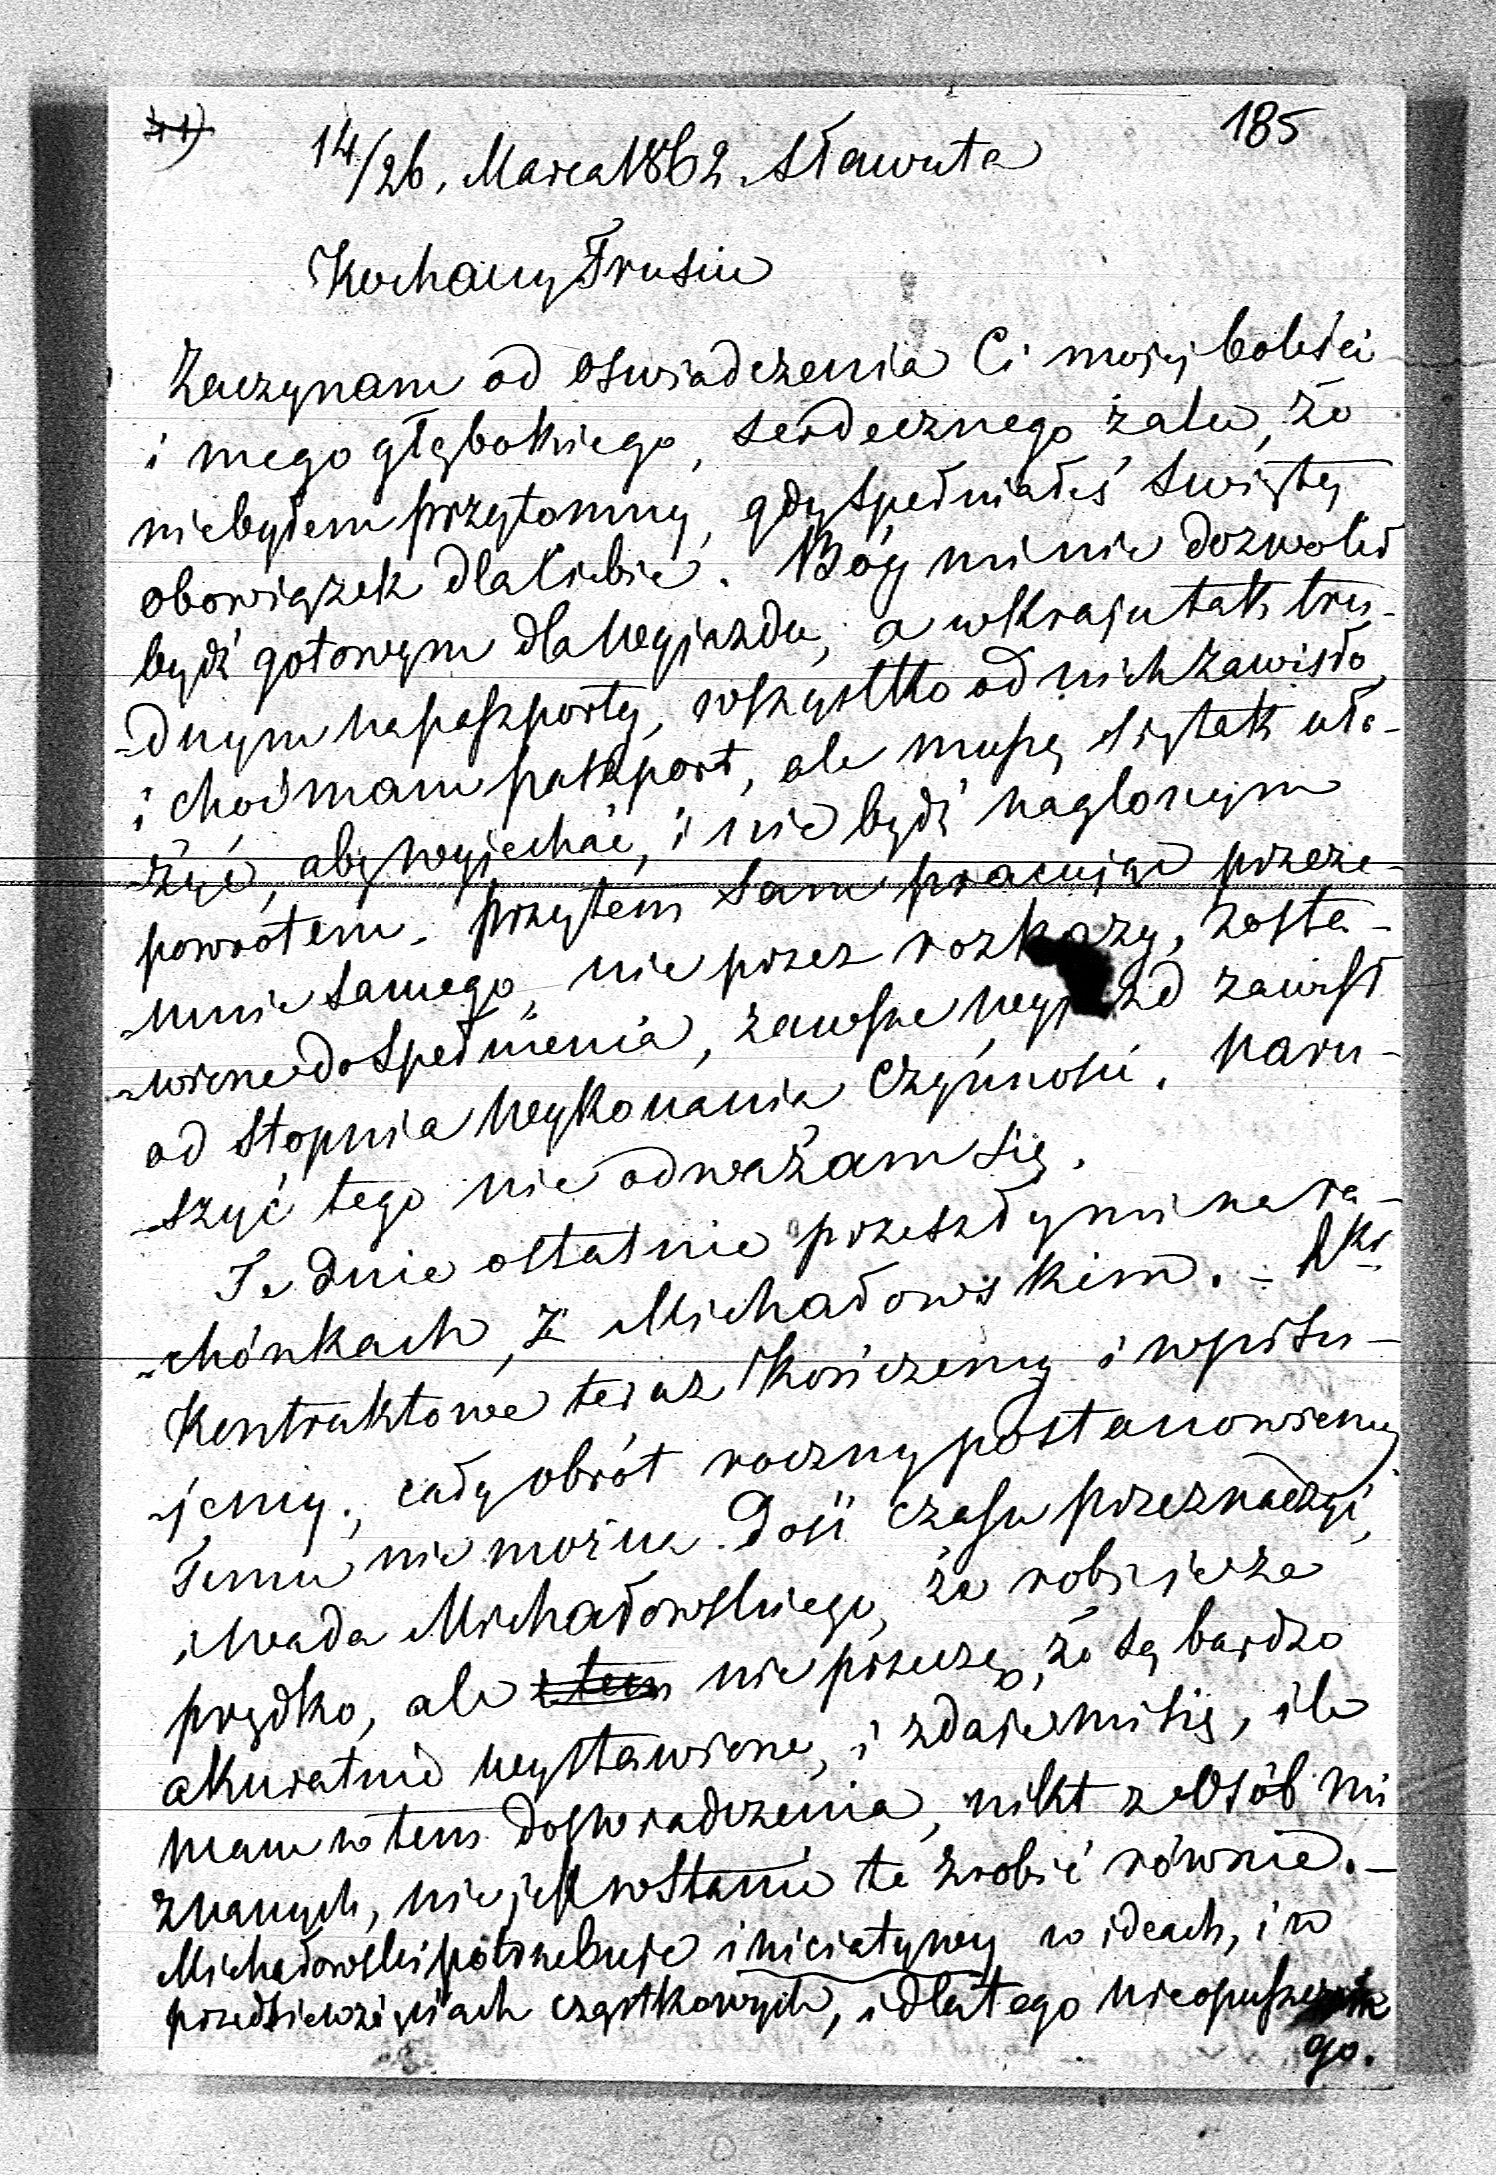 185
14/26. Marca 1862. Sławuta
Kochany Trusiu
Zaczynam od oswiadczenia Ci mojéj boleści
i mego głębokiego, serdecznego żalu, że
niebyłem przytomny, gdy spełniałeś swięty
obowiązek dla Ciebie. Bóg mi nie dozwolił
bydź gotowym dla Wyjazdu, a w Kraju tak tru-
-dnym na paszporty, wszystko od nich zawisło,
i choć mam paszport, ale muszę się tak uło-
-żyć, aby wyjechać, i nie bydź naglonym
powrotem. przytem sam pracując przeze-
-mnie samego, nie przez rozkazy, zosta-
-wione do spełnienia, zawsze wyjazd zawisł
od stopnia wykonania czynności. Naru-
-szyć tego nie odważam się.
Te dnie ostatnie przeszły mi na ra-
-chónkach, z Michałowskim. -
Kontraktowe teraz kończemy i wpisu-
-jemy., cały obrót roczny postanowiemy
Temu nie można dość czasu przeznaczyć,
i wada Michałowskiego, że robi jesze
prędko, ale nie przeczę, że są bardzo
akuratnie wystawione, i zdaje mi się, ile
mam w tem doswiadczenia, nikt z Osób mi
znanych, nie jest w stanie te zrobić równie. -
Michałowski potrzebuje iniciatywy w ideach, i w
przedsiewzięciach cząstkowych, i dlatego nieopuszczam
go.